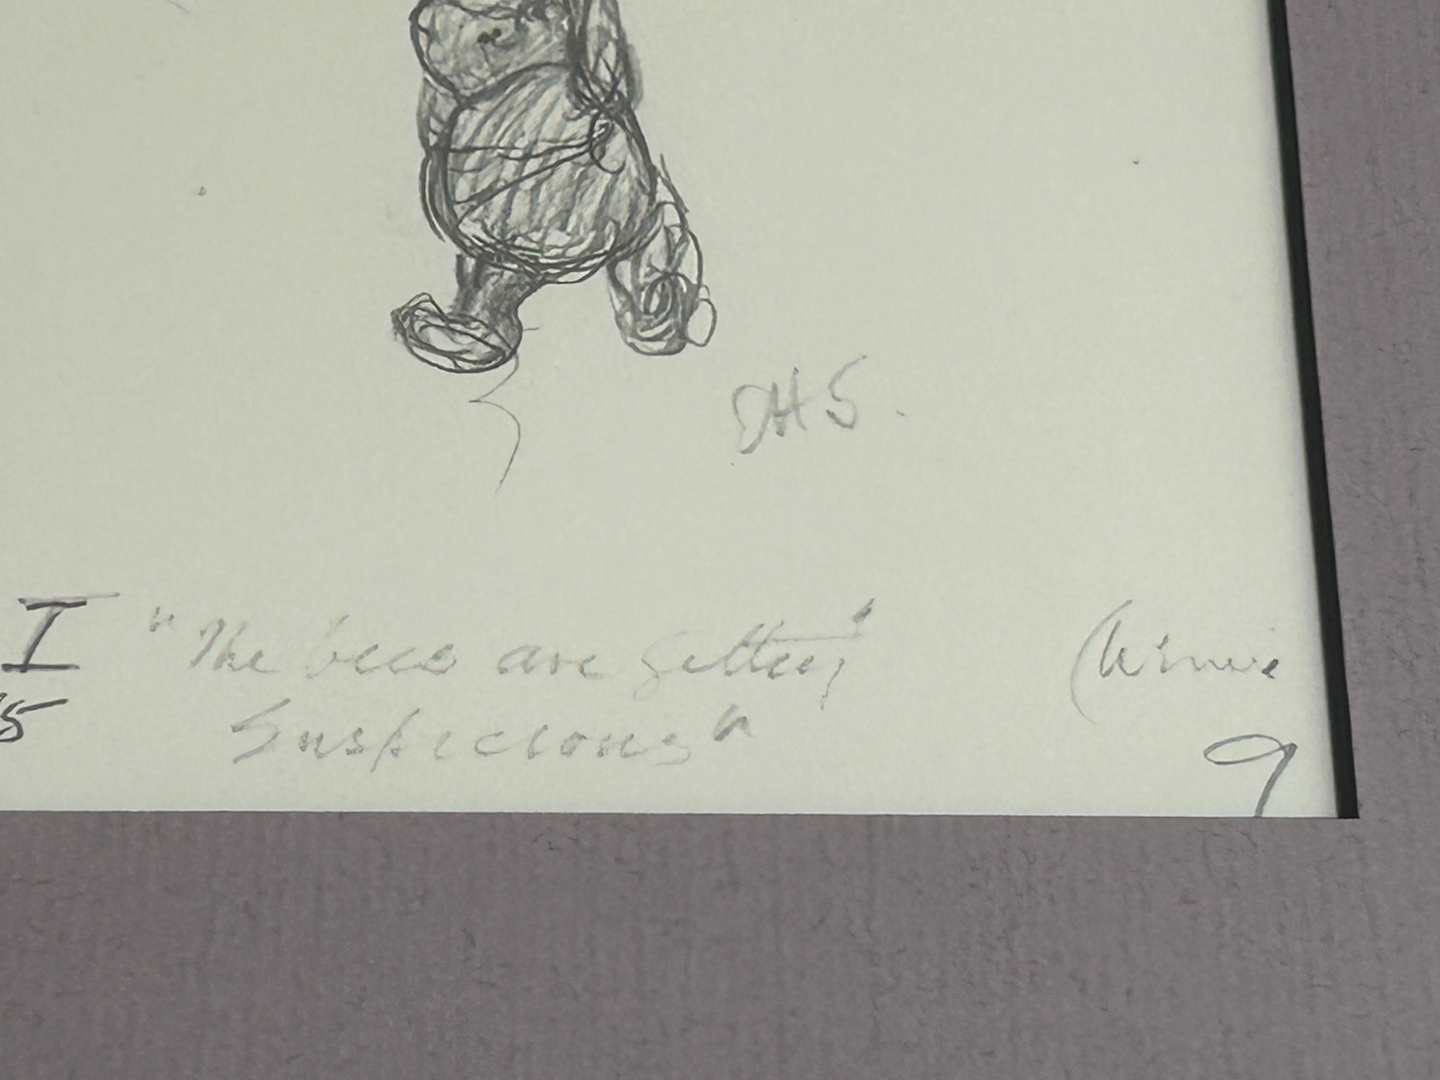 EHS.
I "The bees are getting
5 Suspicious"
(Winnie
9